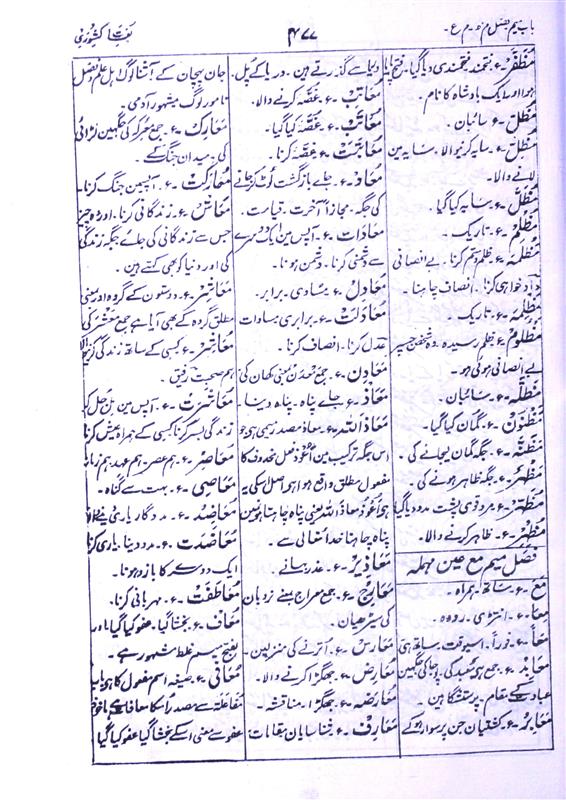 باب میم فصل م ظ۔ م ع۔
۴۷۷
لغات کشوری
مُظَفَّر۔ ع۔ فتحمند۔ فتحمندی دیا گیا۔ فتح پایا
ہوا اور ایک بادشاہ کا نام۔
مِظَلّ۔ ع۔ سائبان۔
مُظِلّ۔ ع۔ سایہ کرنیوالا۔ سایہ مین
لانے والا۔
مُظَلّ۔ ع۔ سایہ کیا گیا۔
مُظلِم۔ ع۔ تاریک۔
مَظلِمَہ۔ ع۔ ظلم و ستم کرنا۔ بے انصافی
داد خواہی کرنا۔ انصاف چاہنا۔
مُظلِمَہ۔ ع۔ تاریک۔
مَظلُوم۔ ع۔ ظلم رسیدہ۔ وہ شخص جسپر
بے انصافی ہوگی ہو۔
مِظَلَّہ۔ ع۔ سائبان۔
مَظنُون۔ ع۔ گمان کیا گیا۔
مَظِنَّہ۔ ع۔ جگہ گمان لیجانے کی۔
مَظہَر۔ ع۔ جگہ ظاہر ہونے کی۔
مُظہَر۔ ع۔ مرد قوی پشت مدد دیا گیا
مُظہِر۔ ع۔ ظاہر کرنے والا۔
فصل میم مع عین مہملہ
مَع۔ ع۔ ساتھ۔ ہمراہ۔
مِعا۔ ع۔ انتڑی۔ رودہ۔
مَعاً۔ ع۔ فوراً۔ اسیوقت۔ ساتھ ہی
مَعابِد۔ ع۔ جمع ہے معبد کی۔ پوجا کی جگہین
عبادت کے مقام۔ پرستشگاہین۔
مَعابِر۔ ع۔ کشتیان جن پر سوار ہو کے
دریا سے گذرتے ہین۔ دریا کے پُل۔
مُعاتِب۔ ع۔ غصّہ کرنے والا۔
مُعاتَب۔ ع۔ غصّہ کیا گیا۔
مُعاتَبَت۔ ع۔ غصّہ کرنا۔
مَعاد۔ ع۔ جاے بازگشت لوٹ کر جانے
کی جگہ۔ مجازاً آخرت۔ قیامت۔
مُعادات۔ ع۔ آپس مین ایک دوسرے
سے دشمنی کرنا۔ دشمن ہونا۔
مُعادِل۔ ع۔ مساوی۔ برابر۔
مُعادَلَت۔ ع۔ برابری۔ مساوات
عدل کرنا۔ انصاف کرنا۔
مَعادِن۔ ع۔ جمع معدن بمعنی کھان کی
مَعاذ۔ ع۔ جاے پناہ۔ پناہ دینا۔
مَعاذَاللہ۔ ع۔ معاذ مصدر میمی ہے جو
اس جگہ ترکیب مین اَعُوذُ فعل محذوف کا
مفعول مطلق واقع ہوا ہے اصل اسکی یہ
ہے اَعُوذُ معاذ اللہ یعنی پناہ چاہتا ہون مین
پناہ چاہنا خدا تعالیٰ سے۔
مَعاذِیر۔ ع۔ عذر بہانے۔
مَعارِج۔ ع۔ جمع معراج بمعنے نردبان
کی سیڑھیان۔
مَعارِس۔ ع۔ اُترنے کی منزلین۔
مُعارِض۔ ع۔ جھگڑا کرنے والا۔
مُعارَضہ۔ ع۔ جھگڑا۔ مناقشہ۔
مَعارِف۔ ع۔ شناسایان۔ مقامات
جان پہچان کے۔ آشنا لوگ۔ اہل علم و فضل
نامور لوگ مشہور آدمی۔
مَعارِک۔ ع۔ جمع معرکہ کی جگہین لڑائی
کی۔ میدان جنگ کے۔
مُعارَکَت۔ ع۔ آپسمین جنگ کرنا۔
مَعاش۔ ع۔ زندگانی کرنا۔ اور وہ چیز
جس سے زندگانی کی جاے جگہ زندگی
کی اور دنیا کو بھی کہتے ہین۔
مَعاشِر۔ ع۔ دوستون کے گروہ اور بمعنی
مطلق گروہ کے بھی آیا ہے جمع معشر کی
مُعاشِر۔ ع۔ کسی کے ساتھ زندگی کرنیوالا
ہم صحبت رفیق۔
مُعاشَرَت۔ ع۔ آپس مین مل جل کر
زندگی بسر کرنا کسی کے ہمراہ عیش کرنا
مُعاصِر۔ ع۔ ہم عصر۔ ہم عہد۔ ہم زمانہ
مَعاصِی۔ ع۔ بہت سے گناہ۔
مُعاضِد۔ ع۔ مددگار۔ یاری دینے والا
مُعاضَدَت۔ ع۔ مدد دینا۔ یاری کرنا
ایک دوسرے کا بازو ہونا۔
مُعاطَفَت۔ ع۔ مہربانی کرنا۔
مُعاف۔ ع۔ بخشا گیا۔ عفو کیا گیا اور
بفتح میم غلط مشہور ہے۔
مُعافیٰ۔ ع۔ صیغہ اسم مفعول کا ہے باب
مفاعلۃ سے مصدر اُسکا معافاۃ ہے ماخوذ
عفو سے معنی اسکے بخشا گیا عفو کیا گیا